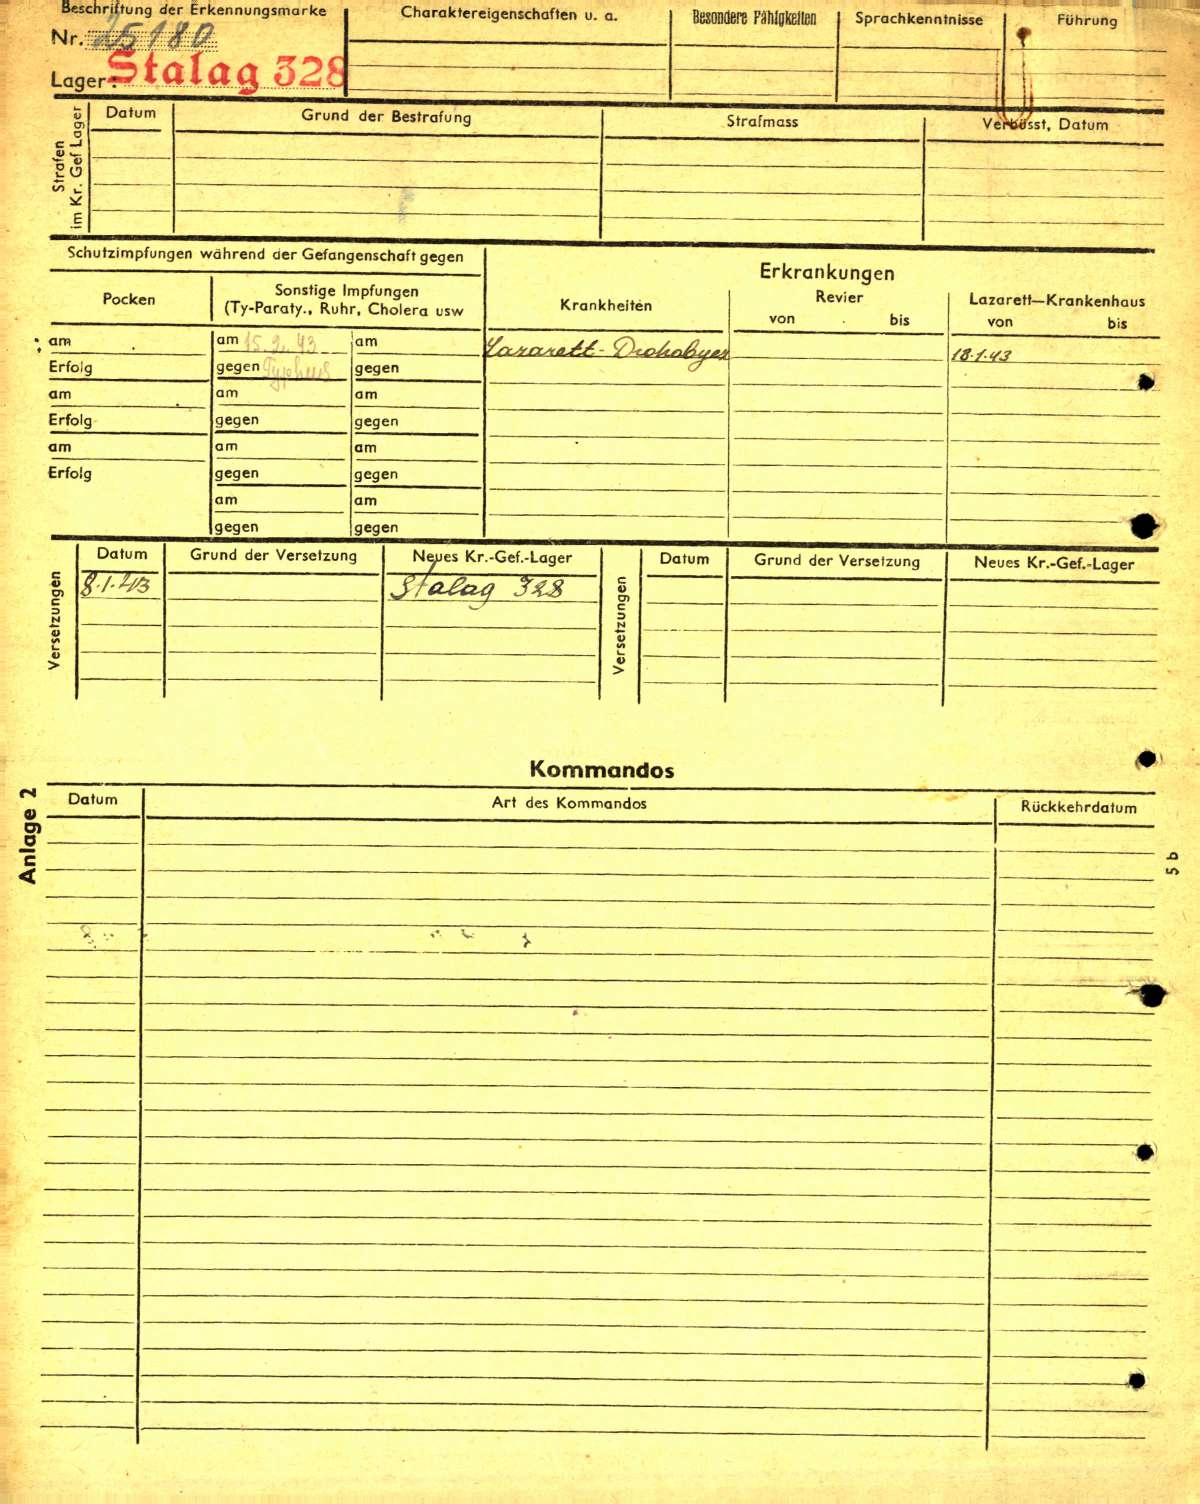 Beschriftung der Erkennungsmarke
Nr. 25180
Lager: Stalag 328
Charaktereigenschaften u. a.
Besondere Fähigkeiten
Sprachkenntnisse
Führung
Strafen
im Kr. Gef Lager
Datum
Grund der Bestrafung
Strafmass
Verbüsst, Datum
Schutzimpfungen während der Gefangenschaft gegen
Pocken
Sonstige Impfungen
(Ty-Paraty., Ruhr, Cholera usw
am
am 15.2.43
am
Erfolg
gegen Typhus
gegen
am
am
am
Erfolg
gegen
gegen
am
am
am
Erfolg
gegen
gegen
am
am
gegen
gegen
Erkrankungen
Krankheiten
Revier
von bis
Lazarett—Krankenhaus
von bis
Lazarett-Drohobycz
18.1.43
Versetzungen
Datum
Grund der Versetzung
Neues Kr.-Gef.-Lager
8.1.43
Stalag 328
Versetzungen
Datum
Grund der Versetzung
Neues Kr.-Gef.-Lager
Kommandos
Anlage 2
Datum
Art des Kommandos
Rückkehrdatum
5b